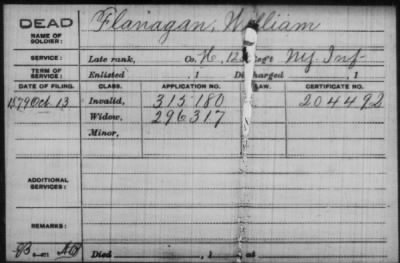 DEAD Flanagan, William
NAME OF SOLDIER:
SERVICE: Late rank, Co. H, 12 Reg't NJ. Inf.
TERM OF SERVICE: Enlisted , 1 Discharged , 1
DATE OF FILING. CLASS. APPLICATION NO. LAW. CERTIFICATE NO.
1879 Oct. 13 Invalid, 315180 204492
Widow, 296317
Minor,
ADDITIONAL SERVICES:
REMARKS:
Died , 1 at